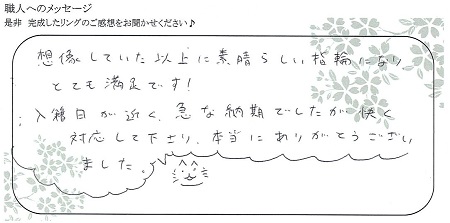 職人へのメッセージ
是非 完成したリングのご感想をお聞かせください♪
想像していた以上に素晴らしい指輪になり
とても満足です!
入籍日が近く、急な納期でしたが快く
対応して下さり、本当にありがとうござい
ました。